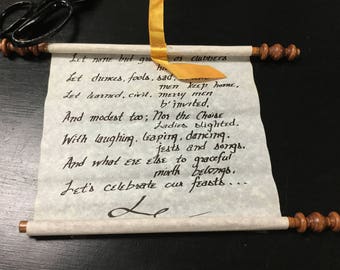 Let none but gr or clubbers
Let dunces, fools, sad,
men keep home,
Let learned, civil, merry men
b'invited,
And modest too; Nor the Choise
Ladies slighted.
With laughing, leaping, dancing,
jests and songs.
And what ere else to graceful
mirth belongs.
Let's celebrate our feasts...